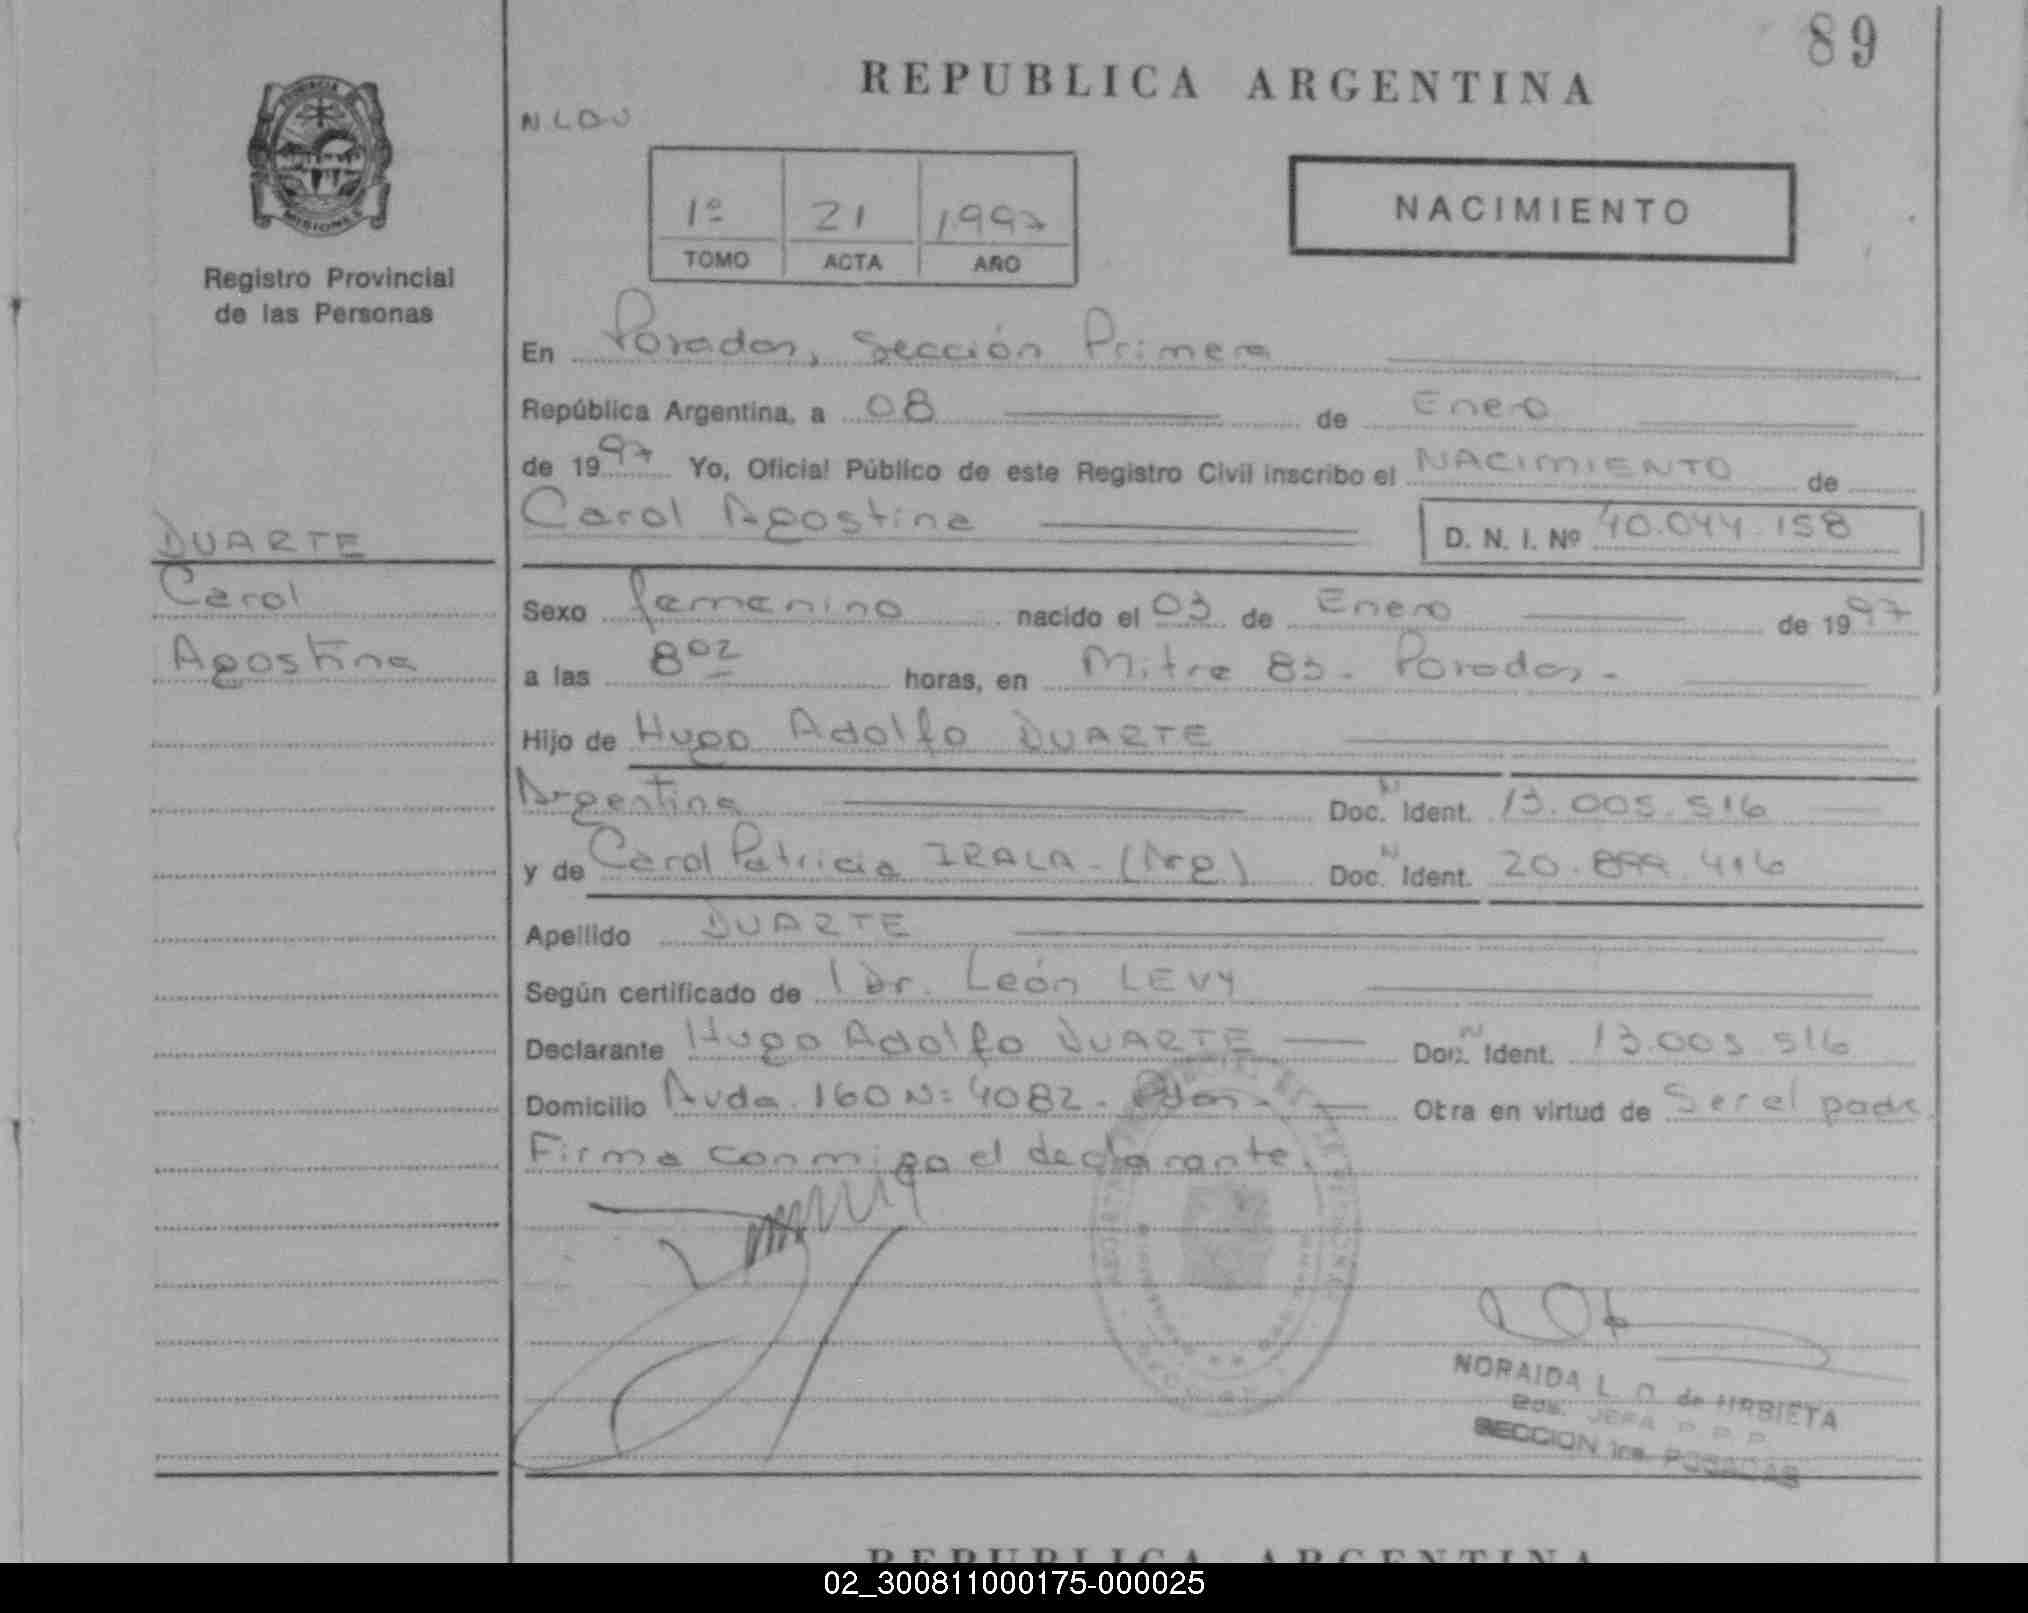 89
REPUBLICA ARGENTINA
N.LOU
1º 21 1997
TOMO ACTA AÑO
NACIMIENTO
MISIONES
Registro Provincial
de las Personas
En Posadas, Sección Primera
República Argentina, a 08 de Enero
de 1997 Yo, Oficial Público de este Registro Civil inscribo el NACIMIENTO de
Carol Agostina D. N. I. Nº 40.044.158
DUARTE
Carol
Agostina
Sexo femenino nacido el 03 de Enero de 1997
a las 8 02 horas, en Mitre 83 - Posadas -
Hijo de Hugo Adolfo DUARTE
Argentina Doc. N Ident. 13.005.516
y de Carol Patricia IRALA - (Arg) Doc. N Ident. 20.899.416
Apellido DUARTE
Según certificado de l Dr. León LEVY
Declarante Hugo Adolfo DUARTE Doc. N Ident. 13.005.516
Domicilio Avda. 160 Nº 4082 - Pdas. - Otra en virtud de Ser el padre.
Firma conmigo el declarante.
NORAIDA L. de URBIETA
JEFA
SECCION 1ra. POSADAS
REPUBLICA ARGENTINA
02_300811000175-000025